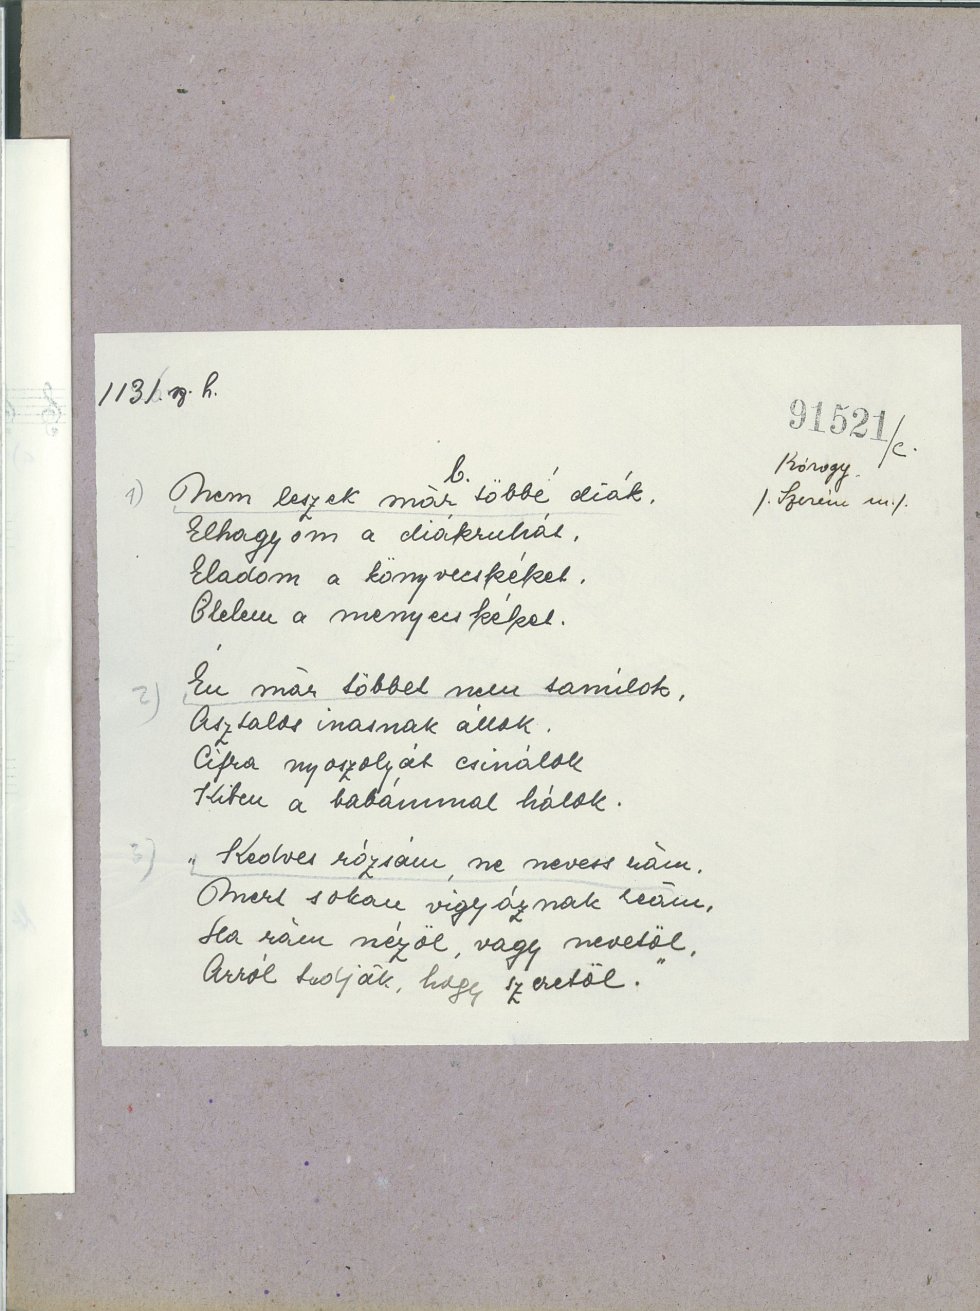 113/ sz. h.
91521/c.
Kórogy.
/. Szerém m./.
b.
1) Nem leszek már többé diák.
Elhagyom a diákruhát,
Eladom a könyvecskéket,
Ölelem a menyecskéket.
2) Én már többet nem tanulok,
Asztalos inasnak állok.
Cifra nyoszolyját csinálok
Kiben a babámmal hálok.
3) „Kedves rózsám, ne nevess rám,
Mert sokan vigyáznak reám,
Ha rám nézöl, vagy nevetöl,
Arról tudják, hogy szeretöl."